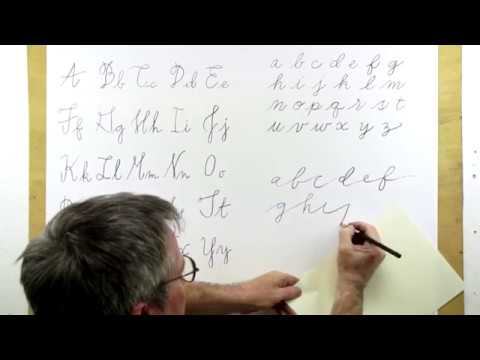 A Bb Cc Dd Ee
Ff Gg Hh Ii Jj
Kk Ll Mm Nn Oo
Tt
Yy
a b c d e f g
h i j k l m
n o p q r s t
u v w x y z
abcdef
ghi